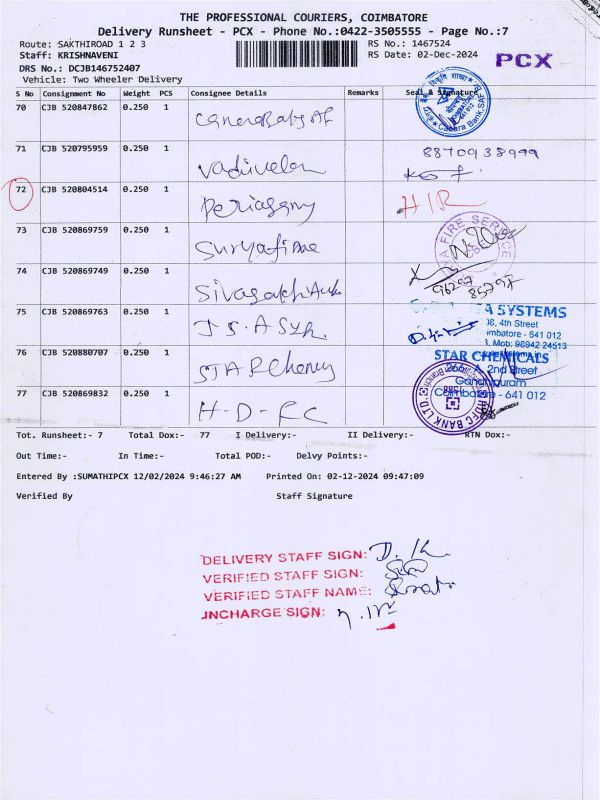 THE PROFESSIONAL COURIERS, COIMBATORE
Delivery Runsheet - PCX - Phone No.:0422-3505555 - Page No.:7
Route: SAKTHIROAD 1 2 3
RS No.: 1467524
Staff: KRISHNAVENI
RS Date: 02-Dec-2024
PCX
DRS No.: DCJB146752407
Vehicle: Two Wheeler Delivery
S No Consignment No Weight PCS Consignee Details Remarks Seal & Signature
70 CJB 520847862 0.250 1
Canara Bank, SAF
71 CJB 520795959 0.250 1 Vadivelan 8870938999
72 CJB 520804514 0.250 1 Periasamy HIR
73 CJB 520869759 0.250 1
FIRE SERVICE
74 CJB 520869749 0.250 1 96297
85297
75 CJB 520869763 0.250 1
SYSTEMS
4th Street
641 012
Mob: 98942 24513
76 CJB 520880707 0.250 1 STAR
STAR CHEMICALS
2nd Street
Coimbatore - 641 012
77 CJB 520869832 0.250 1 H-D-FC
HDFC BANK LTD.
Tot. Runsheet:- 7 Total Dox:- 77 I Delivery:- II Delivery:- RTN Dox:-
Out Time:- In Time:- Total POD:- Delvy Points:-
Entered By :SUMATHIPCX 12/02/2024 9:46:27 AM Printed On: 02-12-2024 09:47:09
Verified By Staff Signature
DELIVERY STAFF SIGN:
VERIFIED STAFF SIGN:
VERIFIED STAFF NAME:
INCHARGE SIGN: